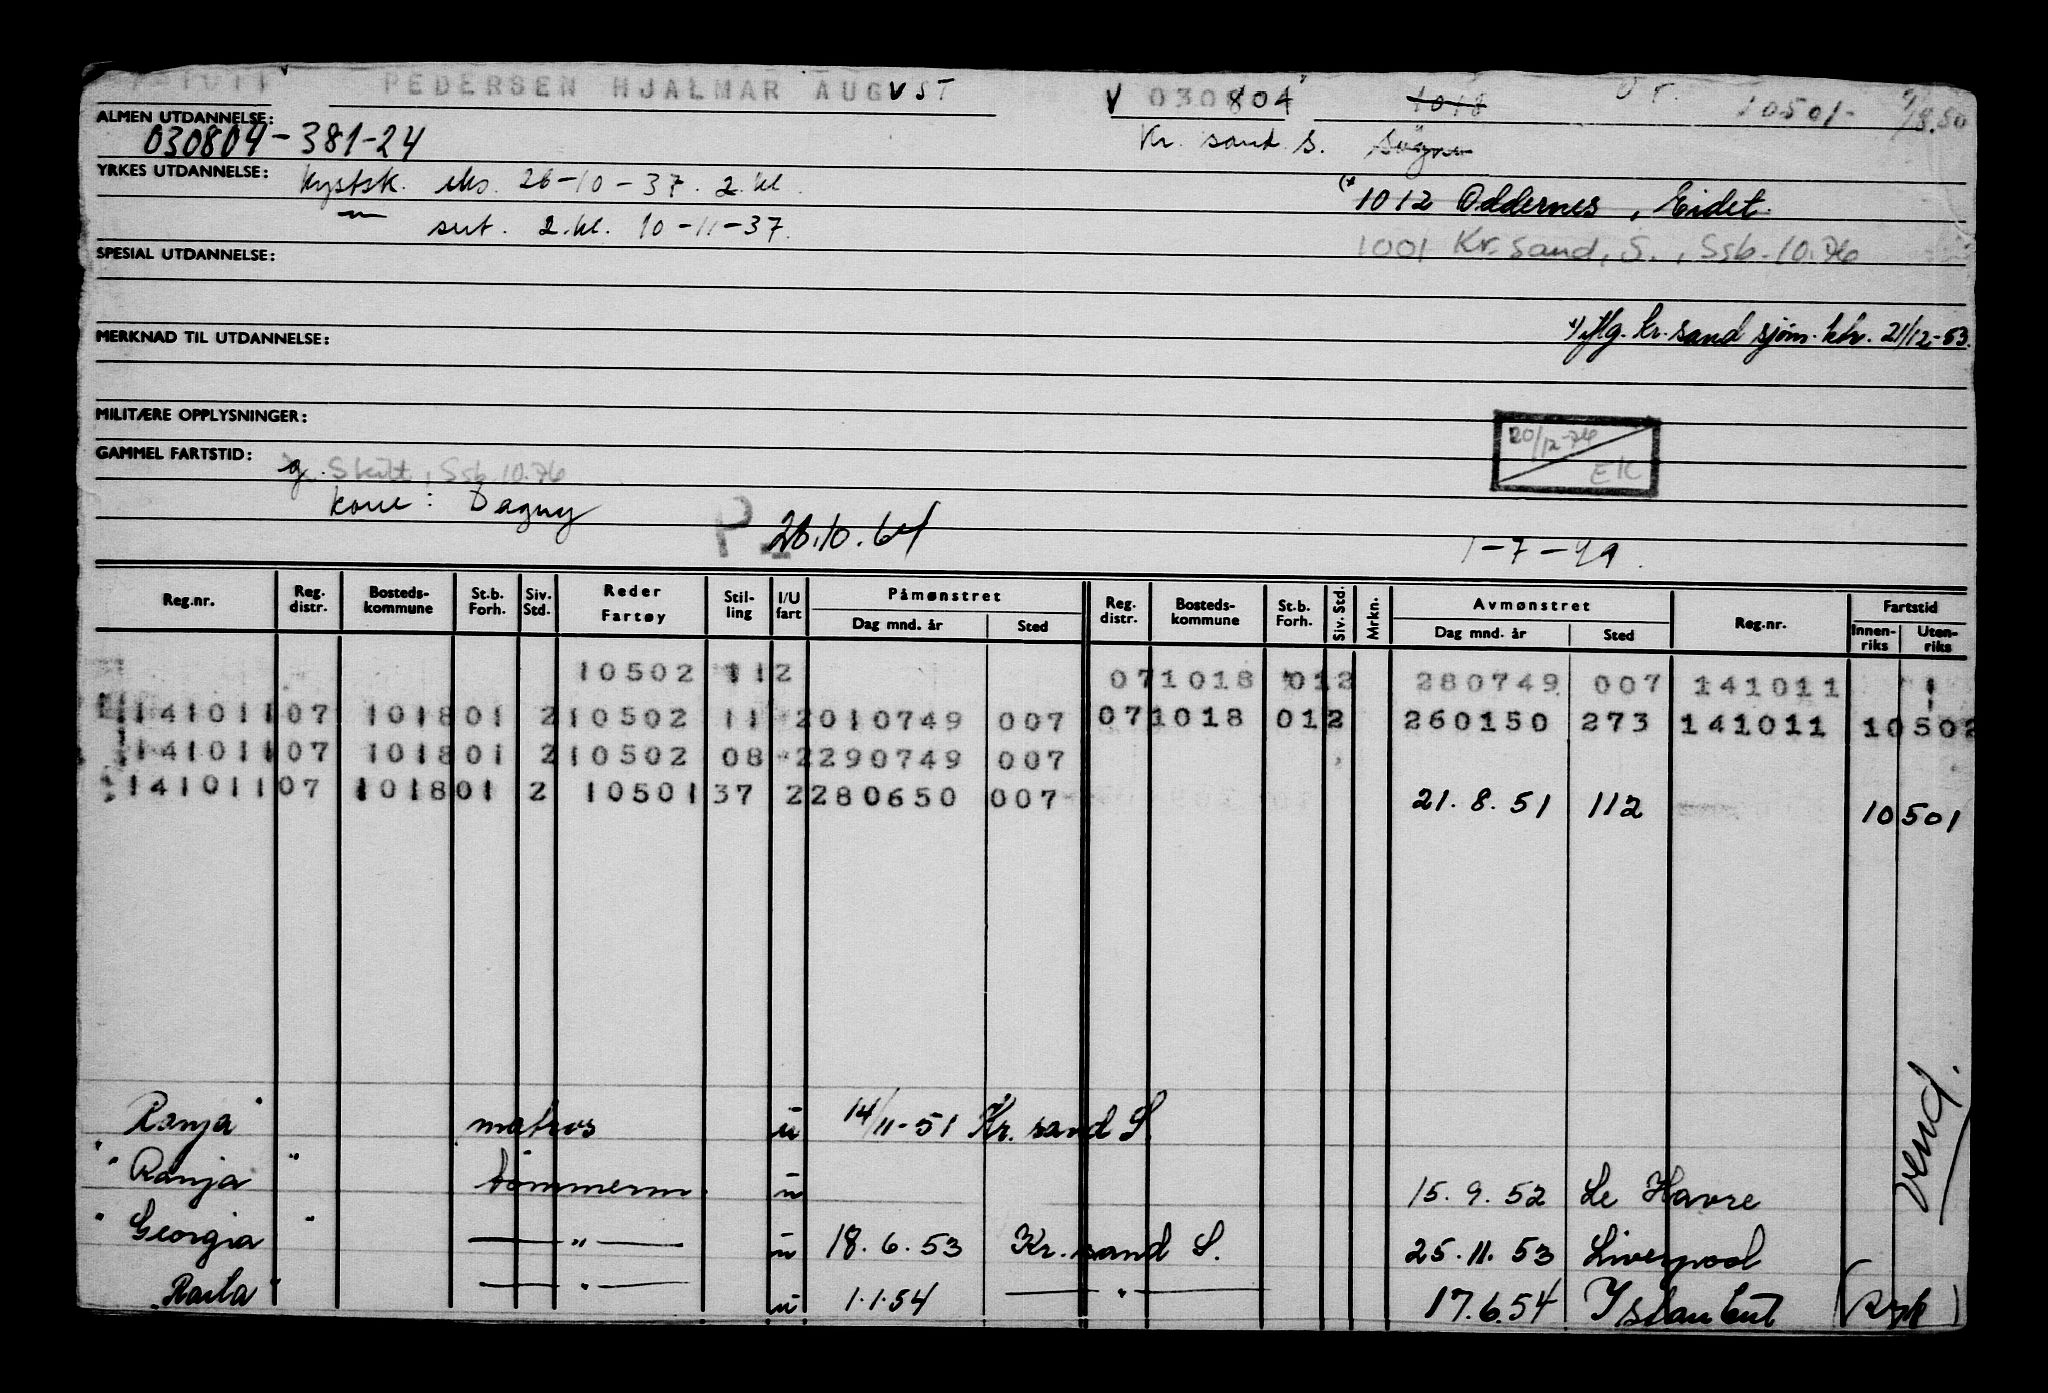 1011 PEDERSEN HJALMAR AUGVST V 030804 1018 10501- 18.50
ALMEN UTDANNELSE: 030804-381-24 Kr. sand. S. Søgne
YRKES UTDANNELSE: Kystsk. eks. 26-10-37. 2. kl. 1012 Oddernes, Eidet.
—"— sert. 2. kl. 10-11-37. 1001 Kr.sand, S., Ssb. 10.76
SPESIAL UTDANNELSE:
Kr.sand sjøm. ktr. 21/12-53.
MERKNAD TIL UTDANNELSE:
MILITÆRE OPPLYSNINGER: 20/12-76 EK
GAMMEL FARTSTID: g. Skilt, Ssb. 10.76
kone: Dagny P 28.10.64 1-7-49.
Reg.nr. Reg. distr. Bosteds-kommune St.b. Forh. Siv. Std. Reder Fartøy Stil-ling I/U fart Påmønstret Dag mnd. år Sted Reg. distr. Bosteds-kommune St.b. Forh. Siv. Std. Mrkn. Avmønstret Dag mnd. år Sted Reg.nr. Fartstid Innen-riks Uten-riks
10502 11 2 07 1018 01 2 280749 007 141011
141011 07 1018 01 2 10502 11 2 010749 007 07 1018 01 2 260150 273 141011 10502
141011 07 1018 01 2 10502 08 2 290749 007
141011 07 1018 01 2 10501 37 2 280650 007 21. 8. 51 112 10501
"Ranja" matros u 14/11-51 Kr. sand S.
"Ranja" tømmerm. u 15. 9. 52 Le Havre
"Georgia" —"— u 18. 6. 53 Kr. sand S. 25. 11. 53 Liverpool
u 1.1.54 —"— 17.6.54 Istanbul
vend.